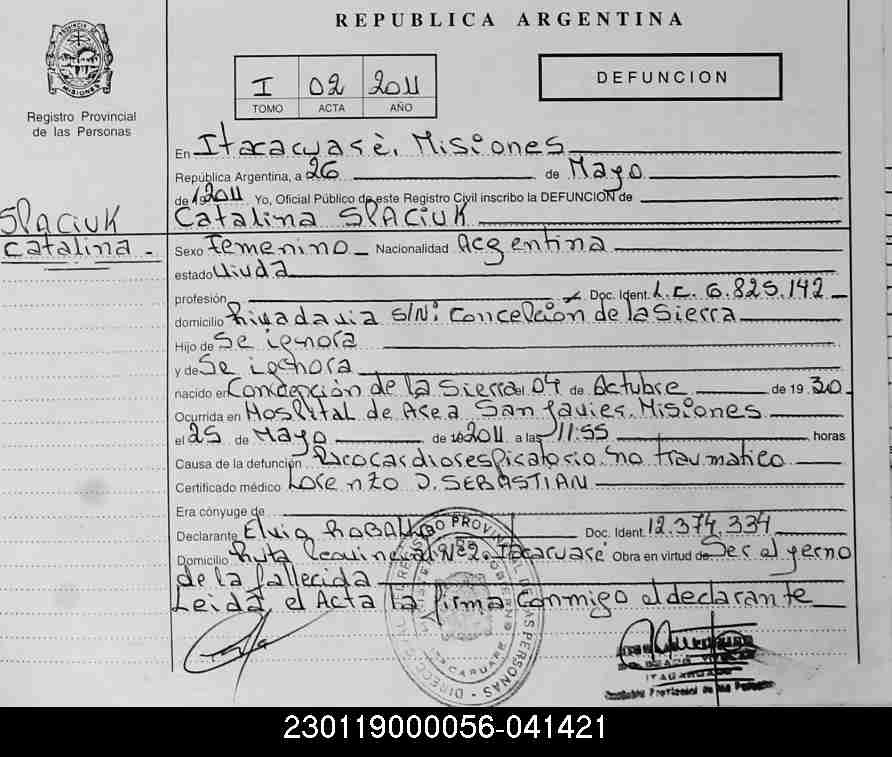 REPUBLICA ARGENTINA
PROVINCIA DE MISIONES
Registro Provincial
de las Personas
I 02 2011
TOMO ACTA AÑO
DEFUNCION
En Itacaruaré, Misiones
República Argentina, a 26 de Mayo
de 2011 Yo, Oficial Público de este Registro Civil inscribo la DEFUNCION de
Catalina SPACIUK
SPACIUK
Catalina
Sexo Femenino Nacionalidad Argentina
estado Viuda
profesión Doc. Ident. L.C. 6.825.142
domicilio Rivadavia S/Nº Concepción de la Sierra
Hijo de Se ignora
y de Se ignora
nacido en Concepción de la Sierra el 04 de Octubre de 1930
Ocurrida en Hospital de Area San Javier. Misiones
el 25 de Mayo de 2011 a las 11:55 horas
Causa de la defunción Parocardiorespiratorio no traumatico
Certificado médico Lorenzo D. SEBASTIAN
Era cónyuge de
Declarante Elvio Doc. Ident. 12.374.334
Domicilio Ruta Provincial Nº2. Itacaruaré Obra en virtud de Ser el yerno
de la fallecida
Leida el Acta la firma conmigo el declarante
230119000056-041421